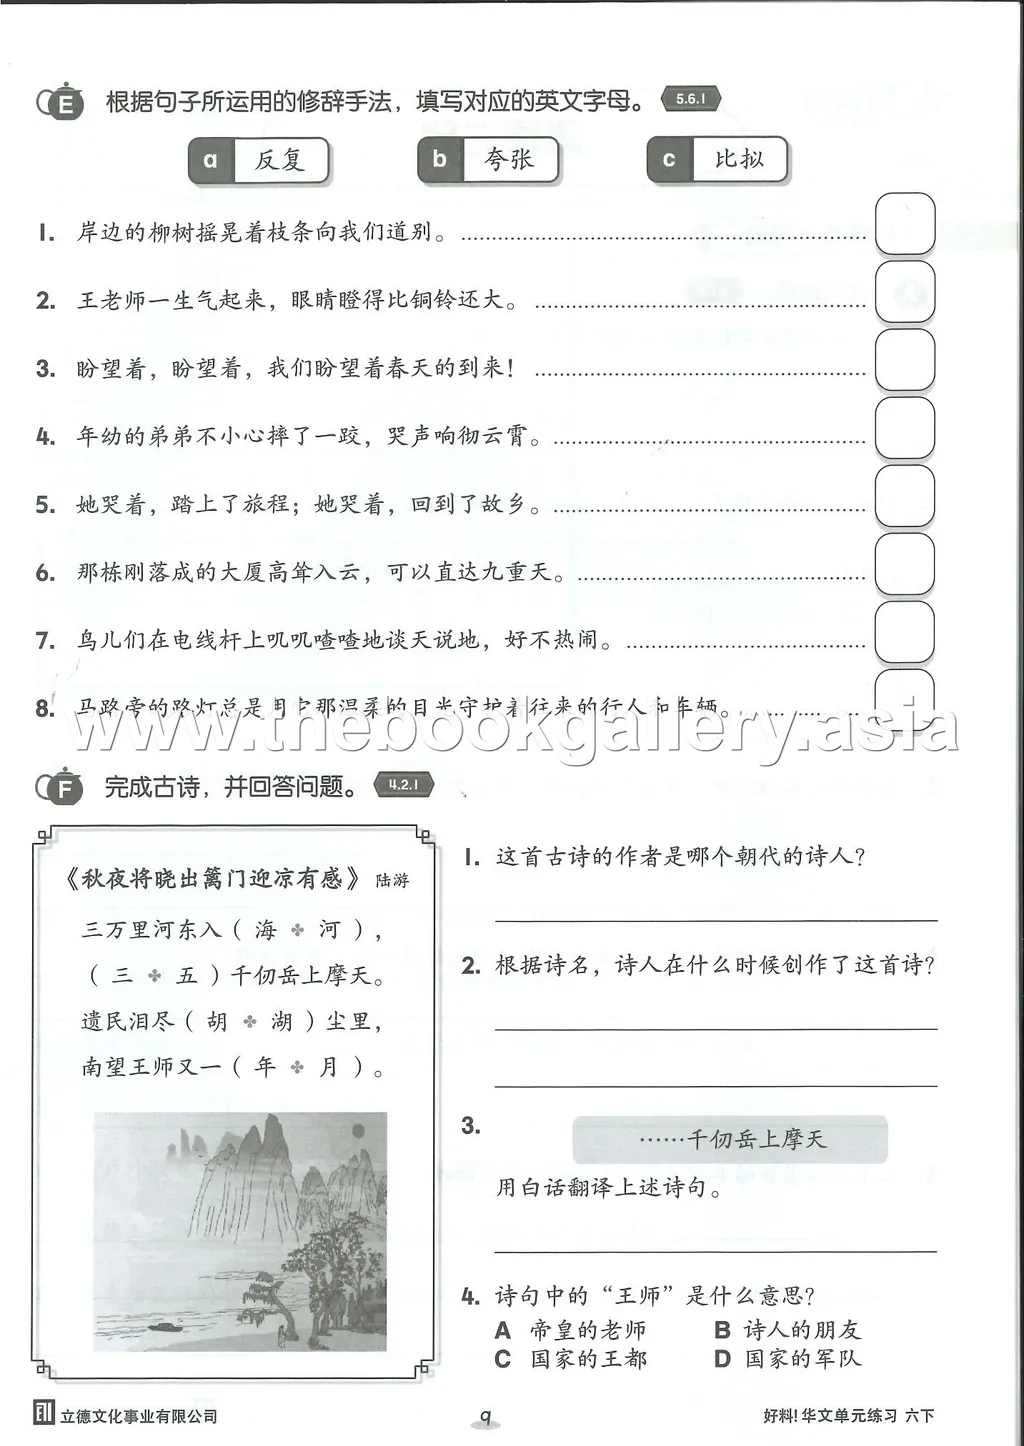 E 根据句子所运用的修辞手法，填写对应的英文字母。 5.6.1
a 反复 b 夸张 c 比拟
1. 岸边的柳树摇晃着枝条向我们道别。
2. 王老师一生气起来，眼睛瞪得比铜铃还大。
3. 盼望着，盼望着，我们盼望着春天的到来！
4. 年幼的弟弟不小心摔了一跤，哭声响彻云霄。
5. 她哭着，踏上了旅程；她哭着，回到了故乡。
6. 那栋刚落成的大厦高耸入云，可以直达九重天。
7. 鸟儿们在电线杆上叽叽喳喳地谈天说地，好不热闹。
8. 马路旁的路灯总是用它那温柔的目光守护着往来的行人和车辆。
www.thebookgallery.asia
F 完成古诗，并回答问题。 4.2.1
《秋夜将晓出篱门迎凉有感》 陆游
三万里河东入（ 海 ✤ 河 ），
（ 三 ✤ 五 ）千仞岳上摩天。
遗民泪尽（ 胡 ✤ 湖 ）尘里，
南望王师又一（ 年 ✤ 月 ）。
1. 这首古诗的作者是哪个朝代的诗人？
2. 根据诗名，诗人在什么时候创作了这首诗？
3. ……千仞岳上摩天
用白话翻译上述诗句。
4. 诗句中的“王师”是什么意思？
A 帝皇的老师 B 诗人的朋友
C 国家的王都 D 国家的军队
立德文化事业有限公司 9 好料！华文单元练习 六下